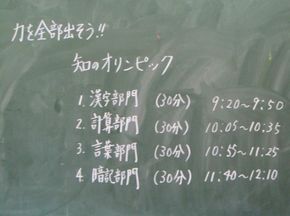 力を全部出そう!!
知のオリンピック
1. 漢字部門 (30分) 9:20〜9:50
2. 計算部門 (30分) 10:05〜10:35
3. 言葉部門 (30分) 10:55〜11:25
4. 暗記部門 (30分) 11:40〜12:10